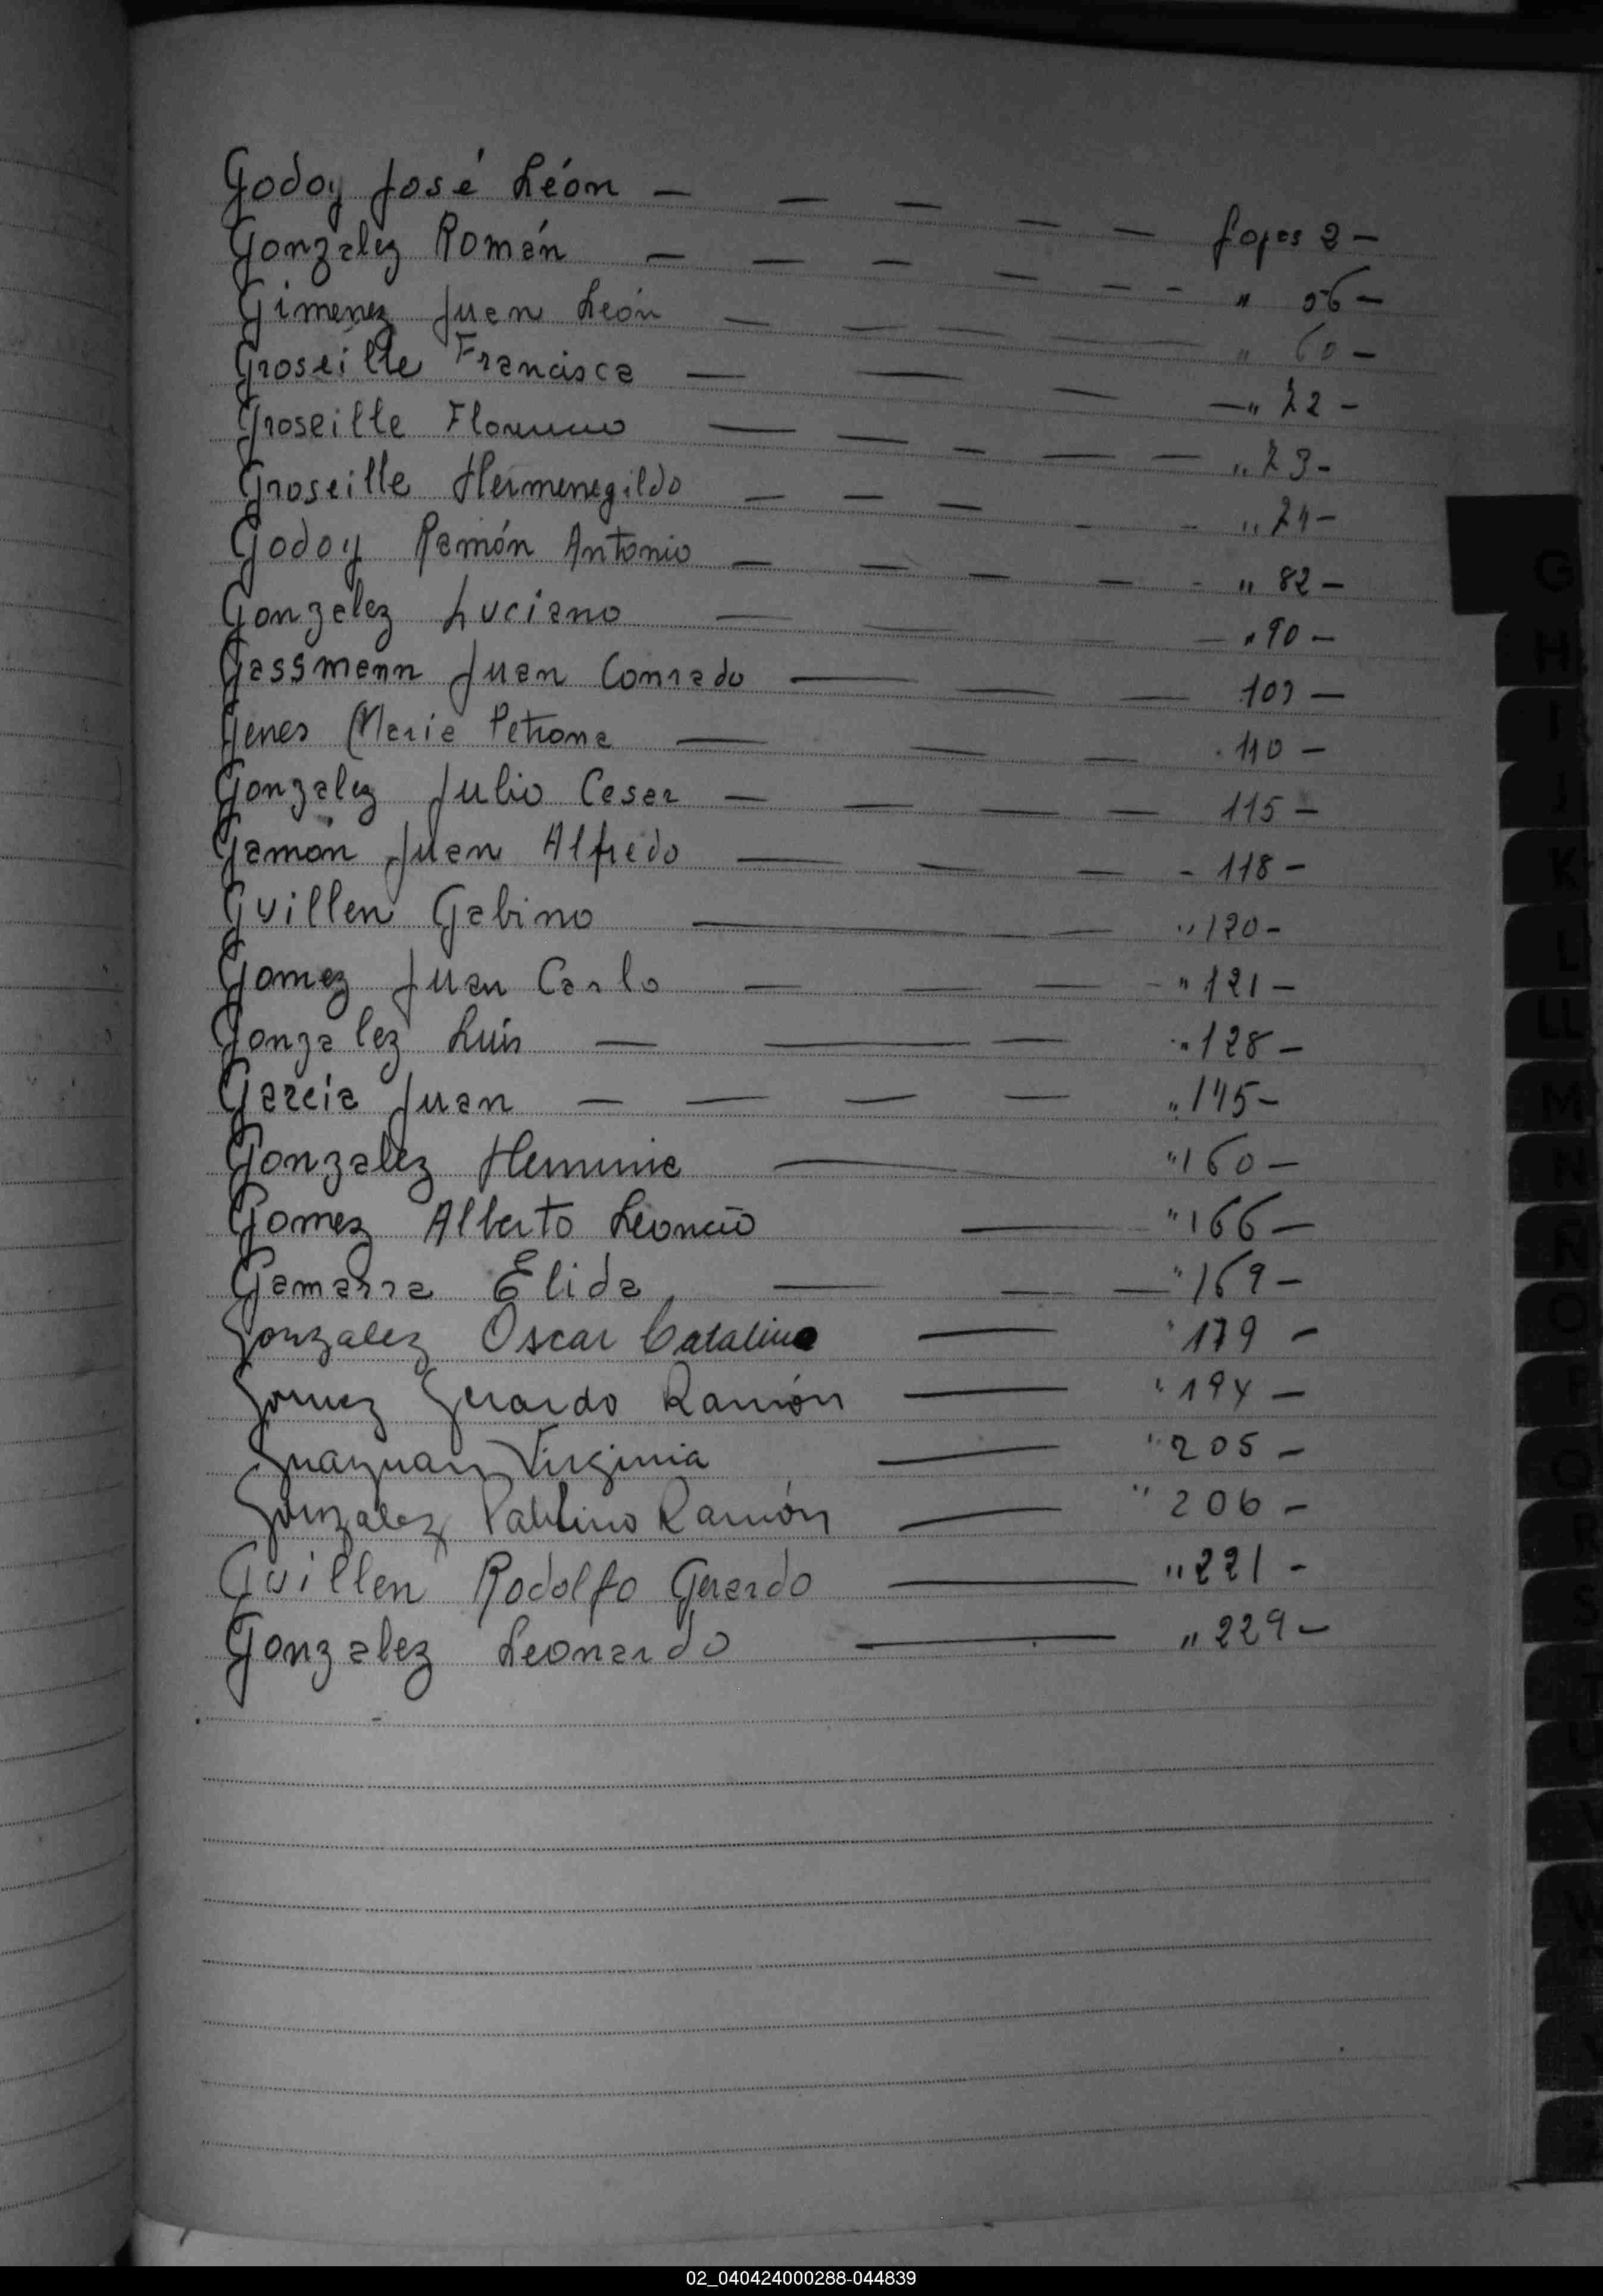 Godoy José Léon — — — — — fojas 2 —
Gonzalez Román — — — — — - " 56 —
Gimenez Juan León — — — — — " 60 —
Groseille Francisca — — — — " 72 -
Groseille Florencio — — — — — " 73 -
Groseille Hermenegildo — — — - - " 74 -
Godoy Ramón Antonio — — — — - " 82 —
Gonzalez Luciano — — — — " 90 —
Gassmann Juan Conrado — — —
Genes Maria Petrona — — — 110 —
Gonzalez Julio Cesar — — — — 115 —
Gamón Juan Alfredo — — — - 118 -
Guillen Gabino — — " 120 -
Gomez Juan Carlo — — — - " 121 —
Gonzalez Luís — — — " 128 —
García Juan — — — — " 145 -
Gonzalez Herminia — " 160 —
Gomez Alberto Leoncio — " 166 —
Gamarra Elida — — — " 169 —
Gonzalez Oscar Catalino — " 179 —
Gomez Gerardo Ramón — " 194 —
Virginia — " 205 —
Gonzalez Pablino Ramón — " 206 —
Guillen Rodolfo Gerardo — " 221 -
Gonzalez Leonardo — " 229 —
G
H
I
J
K
L
LL
M
N
Ñ
O
P
Q
R
S
T
U
V
02_040424000288-044839